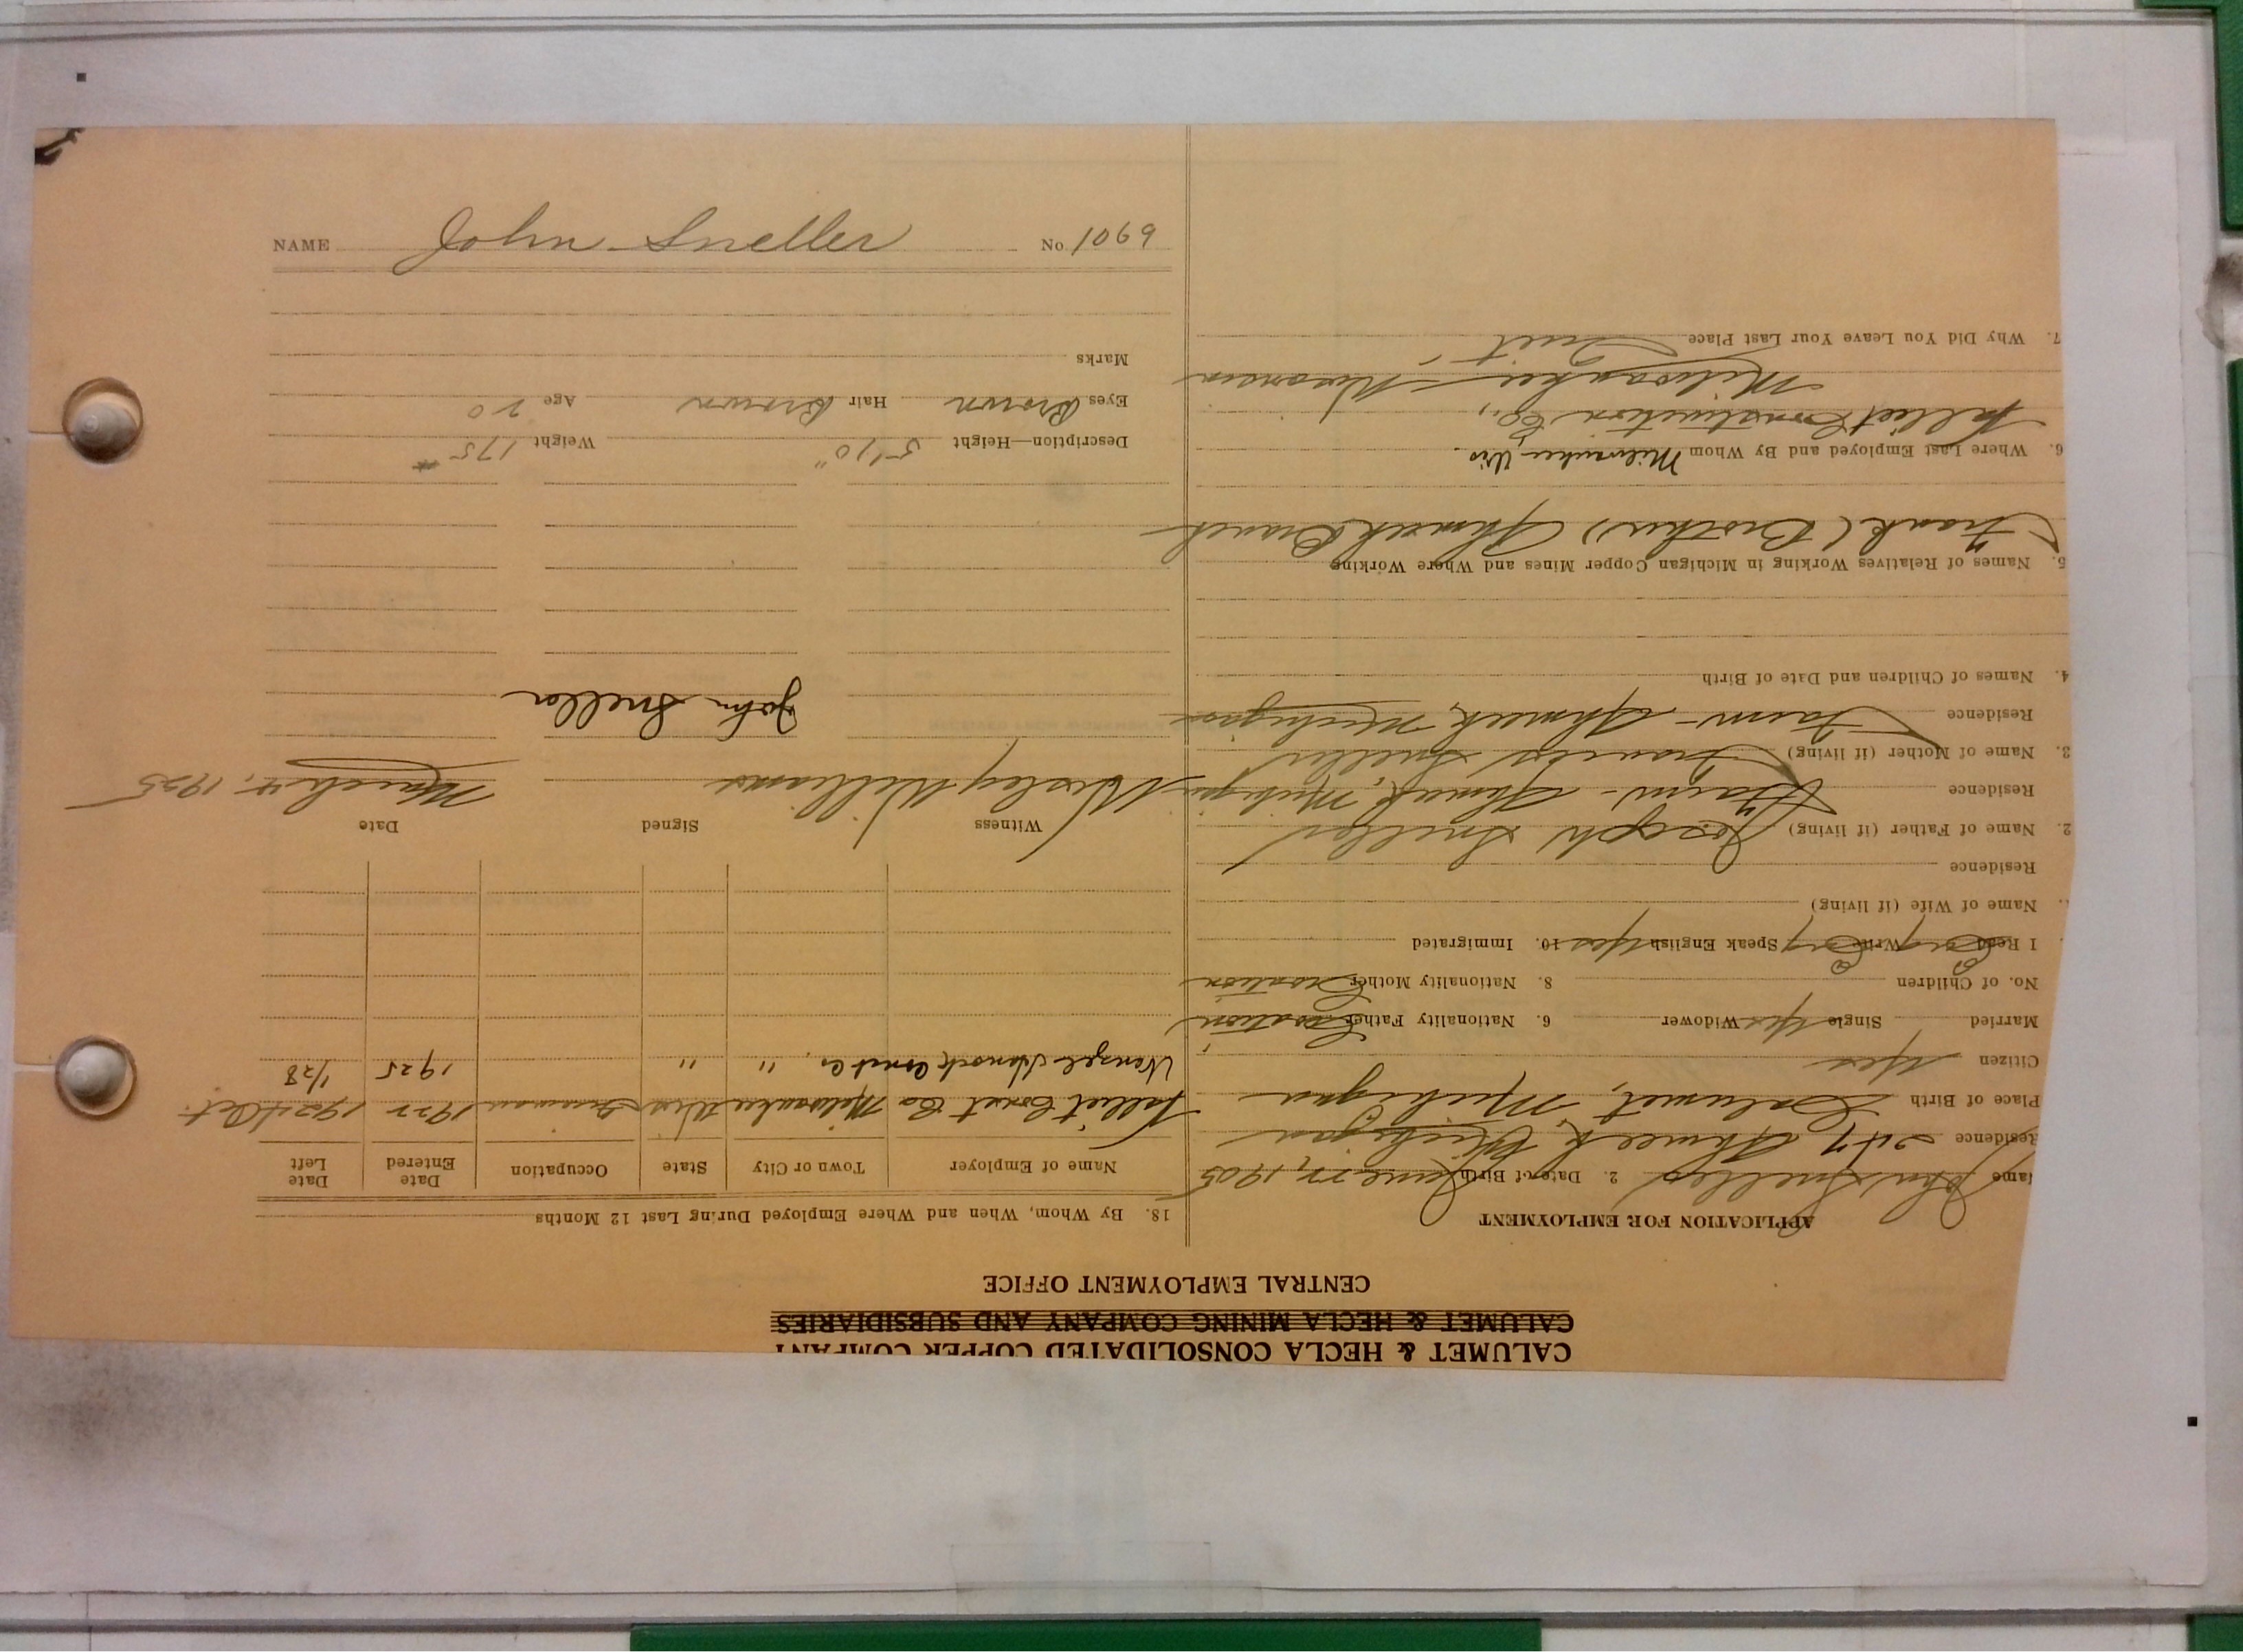 NAME John Sneller No 1069
CALUMET & HECLA CONSOLIDATED COPPER COMPANY
CALUMET & HECLA MINING COMPANY AND SUBSIDIARIES
CENTRAL EMPLOYMENT OFFICE
APPLICATION FOR EMPLOYMENT
Name John Sneller 2. Date of Birth June 27, 1905
Residence Ahmeek, Michigan
Place of Birth Calumet, Michigan
Citizen Yes
Married Single Yes Widower 6. Nationality Father Croatian
No. of Children 8. Nationality Mother Croatian
I Read Write Speak English Yes 10. Immigrated
Name of Wife (if living)
Residence
2. Name of Father (if living) Joseph Sneller
Residence Farm - Ahmeek, Michigan
3. Name of Mother (if living) Frances Sneller
Residence Farm - Ahmeek, Michigan
4. Names of Children and Date of Birth
5. Names of Relatives Working in Michigan Copper Mines and Where Working
Frank (Brother) Ahmeek Branch
6. Where Last Employed and By Whom Milwaukee Wis.
Construction Co.,
Milwaukee - Wisconsin
7. Why Did You Leave Your Last Place Quit
18. By Whom, When and Where Employed During Last 12 Months
Name of Employer Town or City State Occupation Date Entered Date Left
Const Co Milwaukee Wis 1922 1924 Oct.
Const Co. " " 1925 1/28
Witness Signed Date
Wesley Williams March 4, 1925
John Sneller
Description—Height 5'10" Weight 175 #
Eyes Brown Hair Brown Age 20
Marks